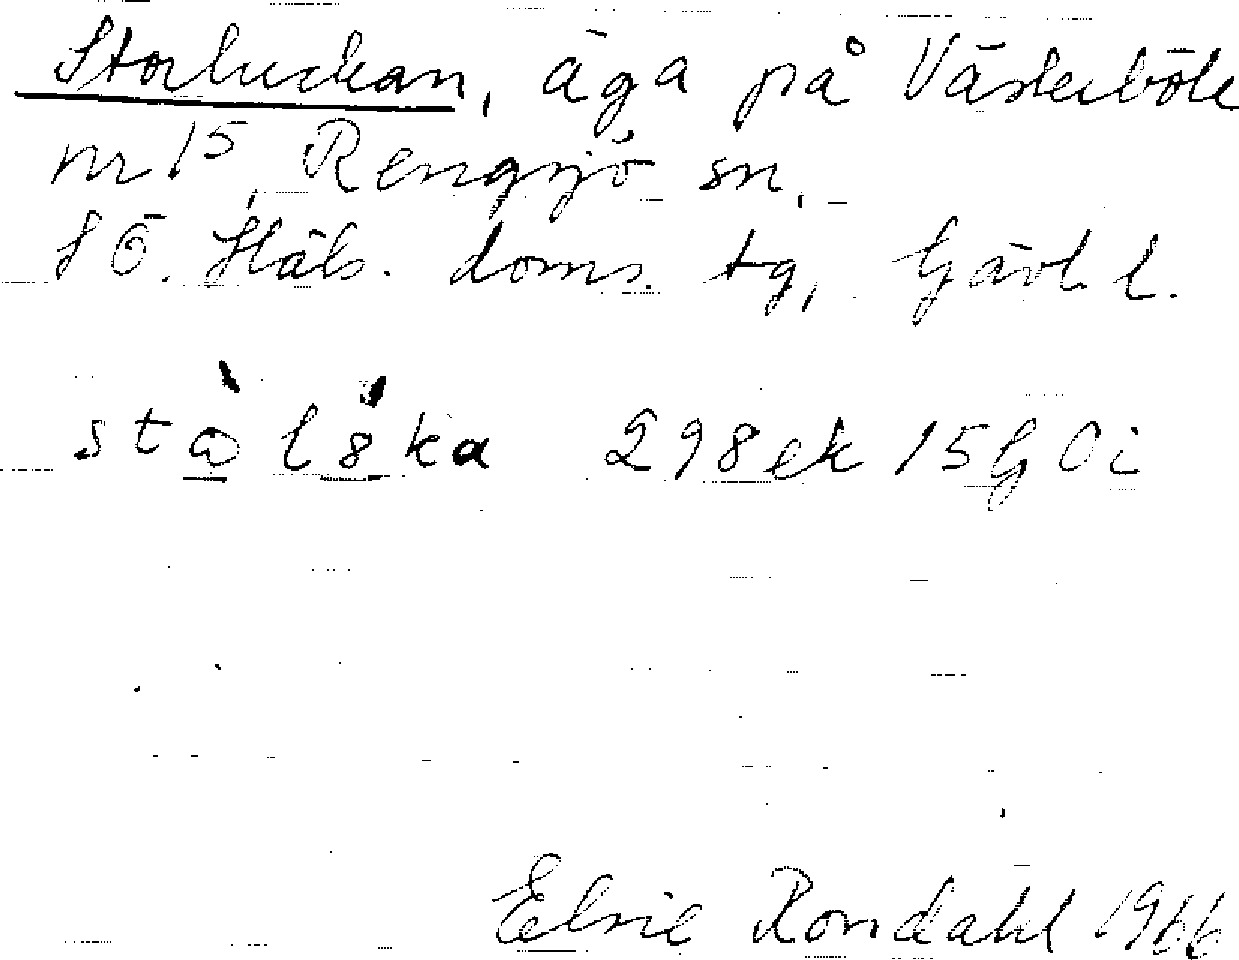 Storluckan, äga på Västerböle
nr 15, Rengsjö sn,
SÖ. Häls. doms. tg, Gävl. l.
298 ek 15 G 0 i
Elsie Rondahl 1966